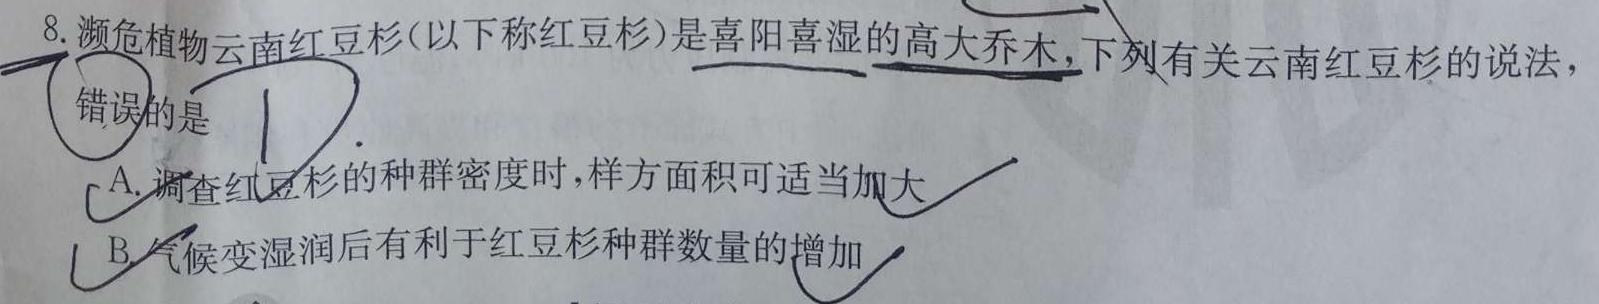 8. 濒危植物云南红豆杉(以下称红豆杉)是喜阳喜湿的高大乔木,下列有关云南红豆杉的说法,
错误的是
A. 调查红豆杉的种群密度时,样方面积可适当加大
B. 气候变湿润后有利于红豆杉种群数量的增加